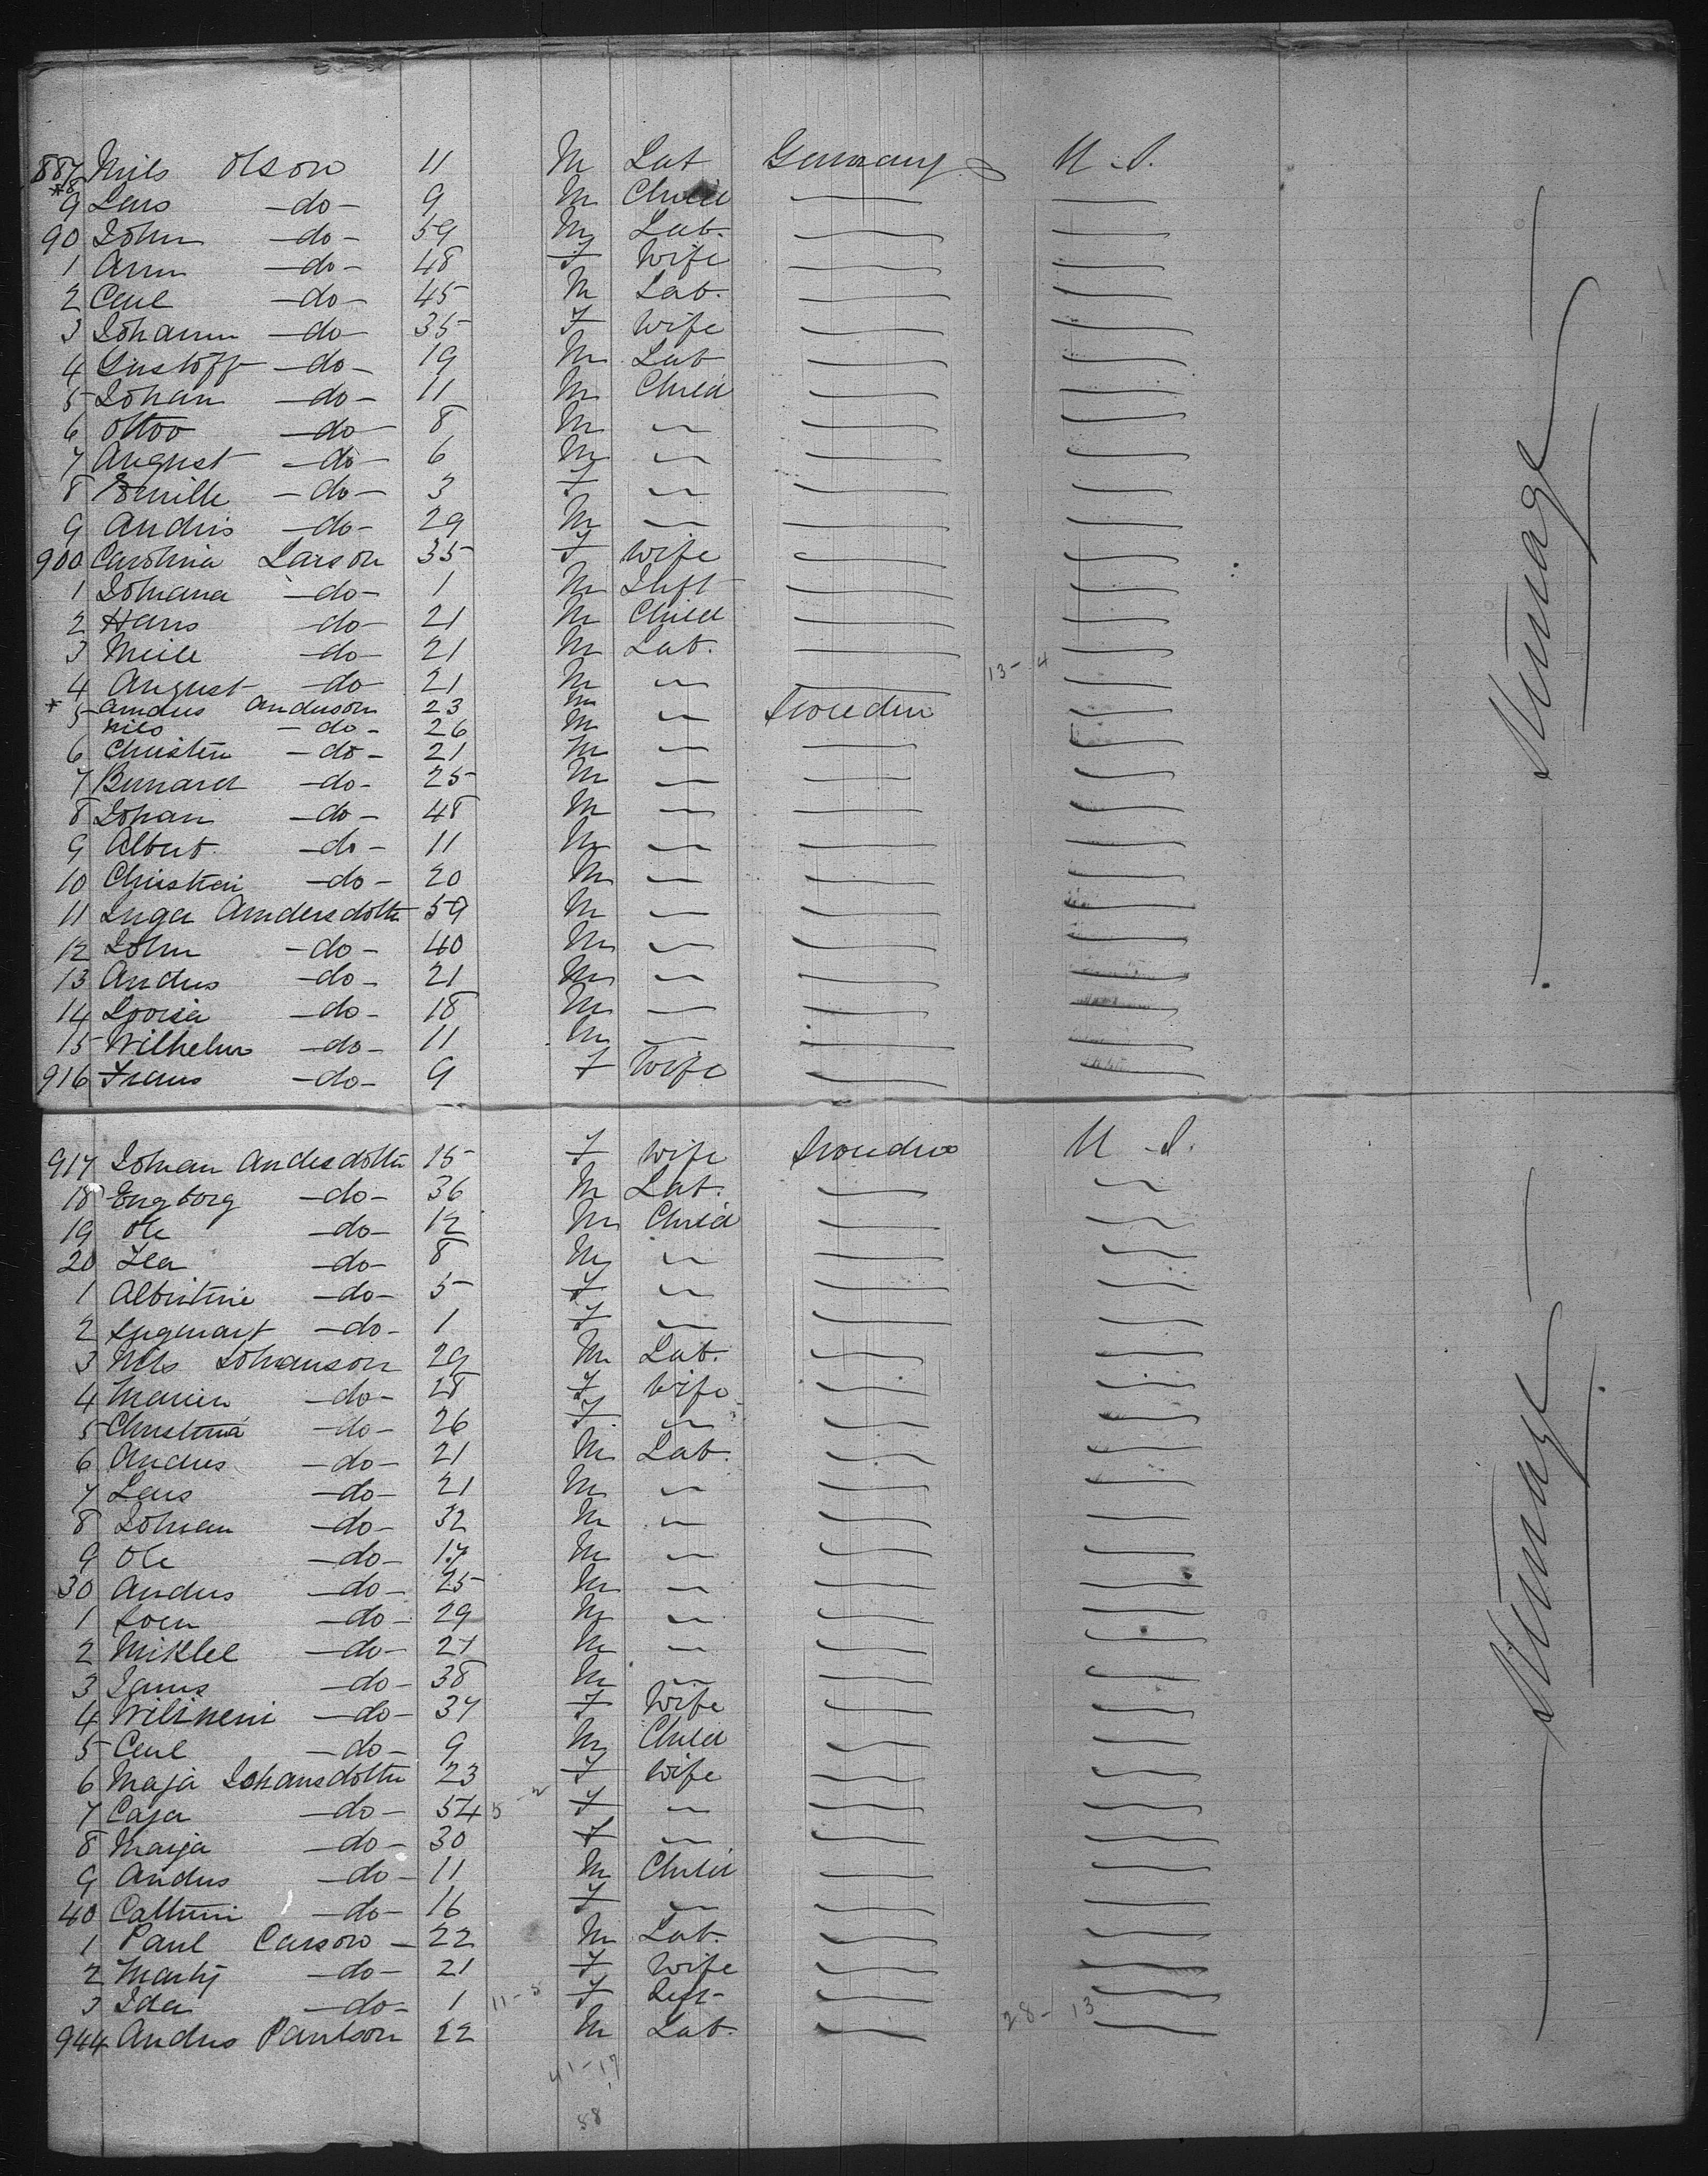 887 Nils Olson 11 M Lab Germany U.S.
*8
9 Lars -do- 9 M Child
90 John -do- 59 M Lab.
1 Ann -do- 48 F Wife
2 Carl -do- 45 M Lab.
3 Johann -do- 35 F Wife
4 Gustoff -do- 19 M Lab
5 Johan -do- 11 M Child
6 Ottoo -do- 8 M "
7 August -do- 6 M "
8 Emille -do- 3 F "
9 Andris -do- 29 M "
900 Carolina Larson 35 F Wife
1 Johana -do- 1 M Inft
2 Hans -do- 21 M Child
3 -do- 21 M Lab.
4 August -do- 21 M " 13-4
* 5 Andus Anderson 23 M " Sweden
Nils -do- 26 M
6 Christen -do- 21 M "
7 Bernard -do- 25 M "
8 Johan -do- 48 M "
9 Albert -do- 11 M "
10 Christian -do- 20 M "
11 Inga Andersdotter 59 M "
12 John -do- 40 M "
13 Andus -do- 21 M "
14 Lovisa -do- 18 M "
15 Wilhelm -do- 11 M "
916 Frans -do- 9 F Wife
Steerage
917 Johan Andersdotter 15 F Wife Sweden U.S.
18 Engborg -do- 36 M Lab.
19 Ole -do- 12 M Child
20 -do- 8 M "
1 Albertine -do- 5 F "
2 -do- 1 F "
3 Nils Johanson 29 M Lab.
4 -do- 28 F Wife
5 Christina -do- 26 F "
6 Andus -do- 21 M Lab.
7 Lars -do- 21 M "
8 Johan -do- 32 M "
9 Ole -do- 17 M "
30 Andus -do- 25 M "
1 -do- 29 M "
2 Mikkel -do- 21 M "
3 -do- 38 M "
4 -do- 37 F Wife
5 Carl -do- 9 M Child
6 Maja Johansdotter 23 F Wife
7 Caja -do- 54 F "
8 Marja -do- 30 F "
9 Andus -do- 11 M Child
40 -do- 16 F "
1 Paul Carson - 22 M Lab.
2 -do- 21 F Wife
3 Ida -do- 1 11-5 F Inft 28-13
944 Andus Paulson 22 M Lab.
41-17
58
Steerage